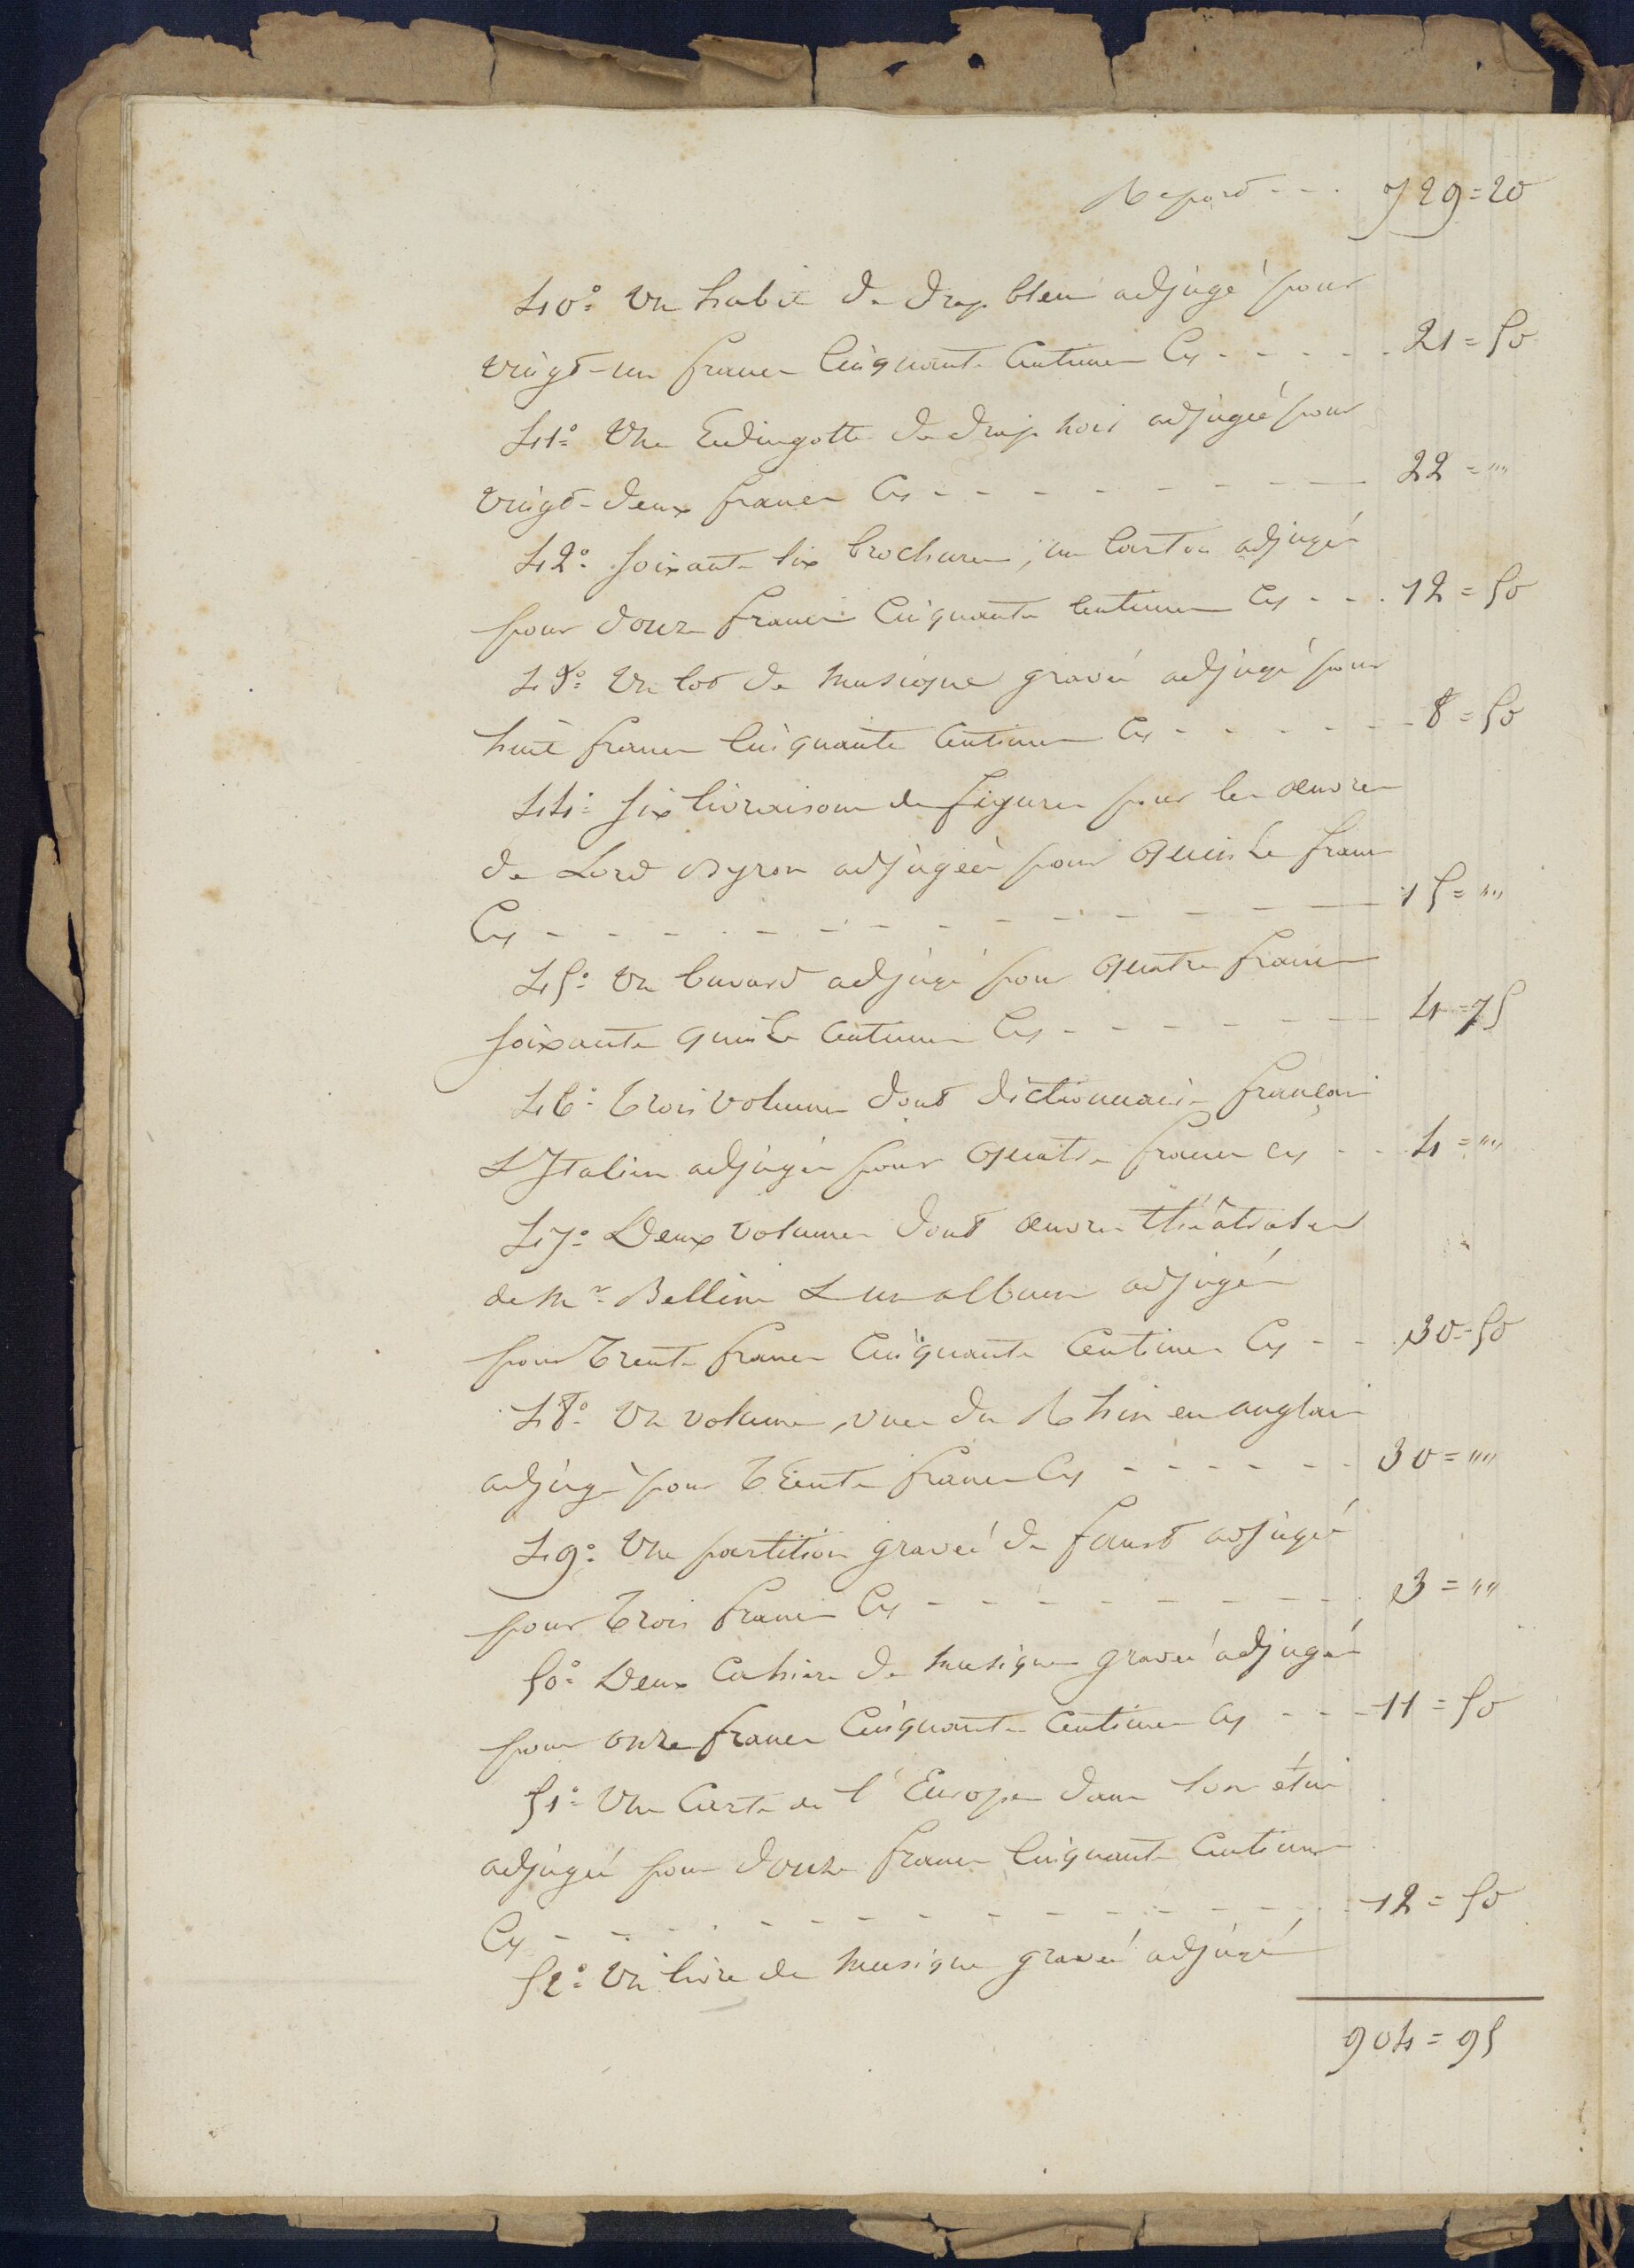 Report - - - 729=20
40° Un habit de drap bleu adjugé pour
vingt-un francs cinquante centimes Cy - - - - - 21=50
41° Une Redingotte de drap noir adjugée pour
vingt-deux francs Cy - - - - - - - - 22="""
42° Soixante six brochures, un carton adjugés
pour douze francs cinquante centimes Cy - - - 12=50
43° Un lot de musique gravée adjugé pour
huit francs cinquante centimes Cy - - - - - 8=50
44° Six livraisons de figures pour les œuvres
de Lord Byron adjugées pour quinze francs
Cy - - - - - - - - - - - - - - 15="""
45° Un buvard adjugé pour quatre francs
soixante quinze centimes Cy - - - - - - 4=75
46° Trois volumes dont dictionnaire français
& Italien adjugés pour quatre francs cy - - - 4="""
47° Deux volumes dont œuvres théâtrales
de Mr Bellini & un album adjugés
pour trente francs cinquante centimes Cy - - - 30=50
48° Un volume, vues du Rhin en anglais
adjugé pour trente francs Cy - - - - - - 30=""""
49° Une partition gravée de faust adjugée
pour trois francs Cy - - - - - - - - - 3=""""
50° Deux cahiers de musique gravée adjugés
pour onze francs cinquante centimes Cy - - - 11=50
51° Une Carte de l'Europe dans son étui
adjugée pour douze francs cinquante centimes
Cy - - - - - - - - - - - - - - 12=50
52° Un livre de musique gravée adjugé
904=95